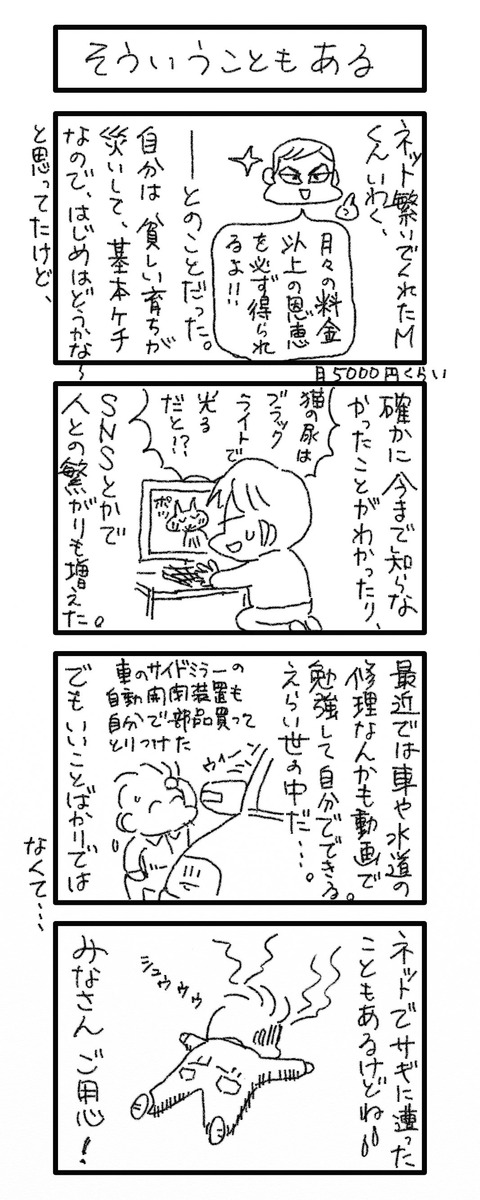 そういうこともある
ネット繋いでくれたM
くんいわく、
月々の料金
以上の恩恵
を必ず得られ
るよ!!
――とのことだった。
自分は貧しい育ちが
災いして、基本ケチ
なので、はじめはどうかな〜
と思ってたけど、
月5000円くらい
確かに今まで知らな
かったことがわかったり、
猫の尿は
ブラック
ライトで
光る
だと!?
ポッ
SNSとかで
人との繋がりも増えた。
最近では車や水道の
修理なんかも動画で
勉強して自分でできる。
えらい世の中だ…。
車のサイドミラーの
自動開閉装置も
自分で部品買って
とりつけた
ウィーン
でもいいことばかりでは
なくて…
ネットでサギに遭った
こともあるけどね
シュウゥゥ
みなさんご用心!